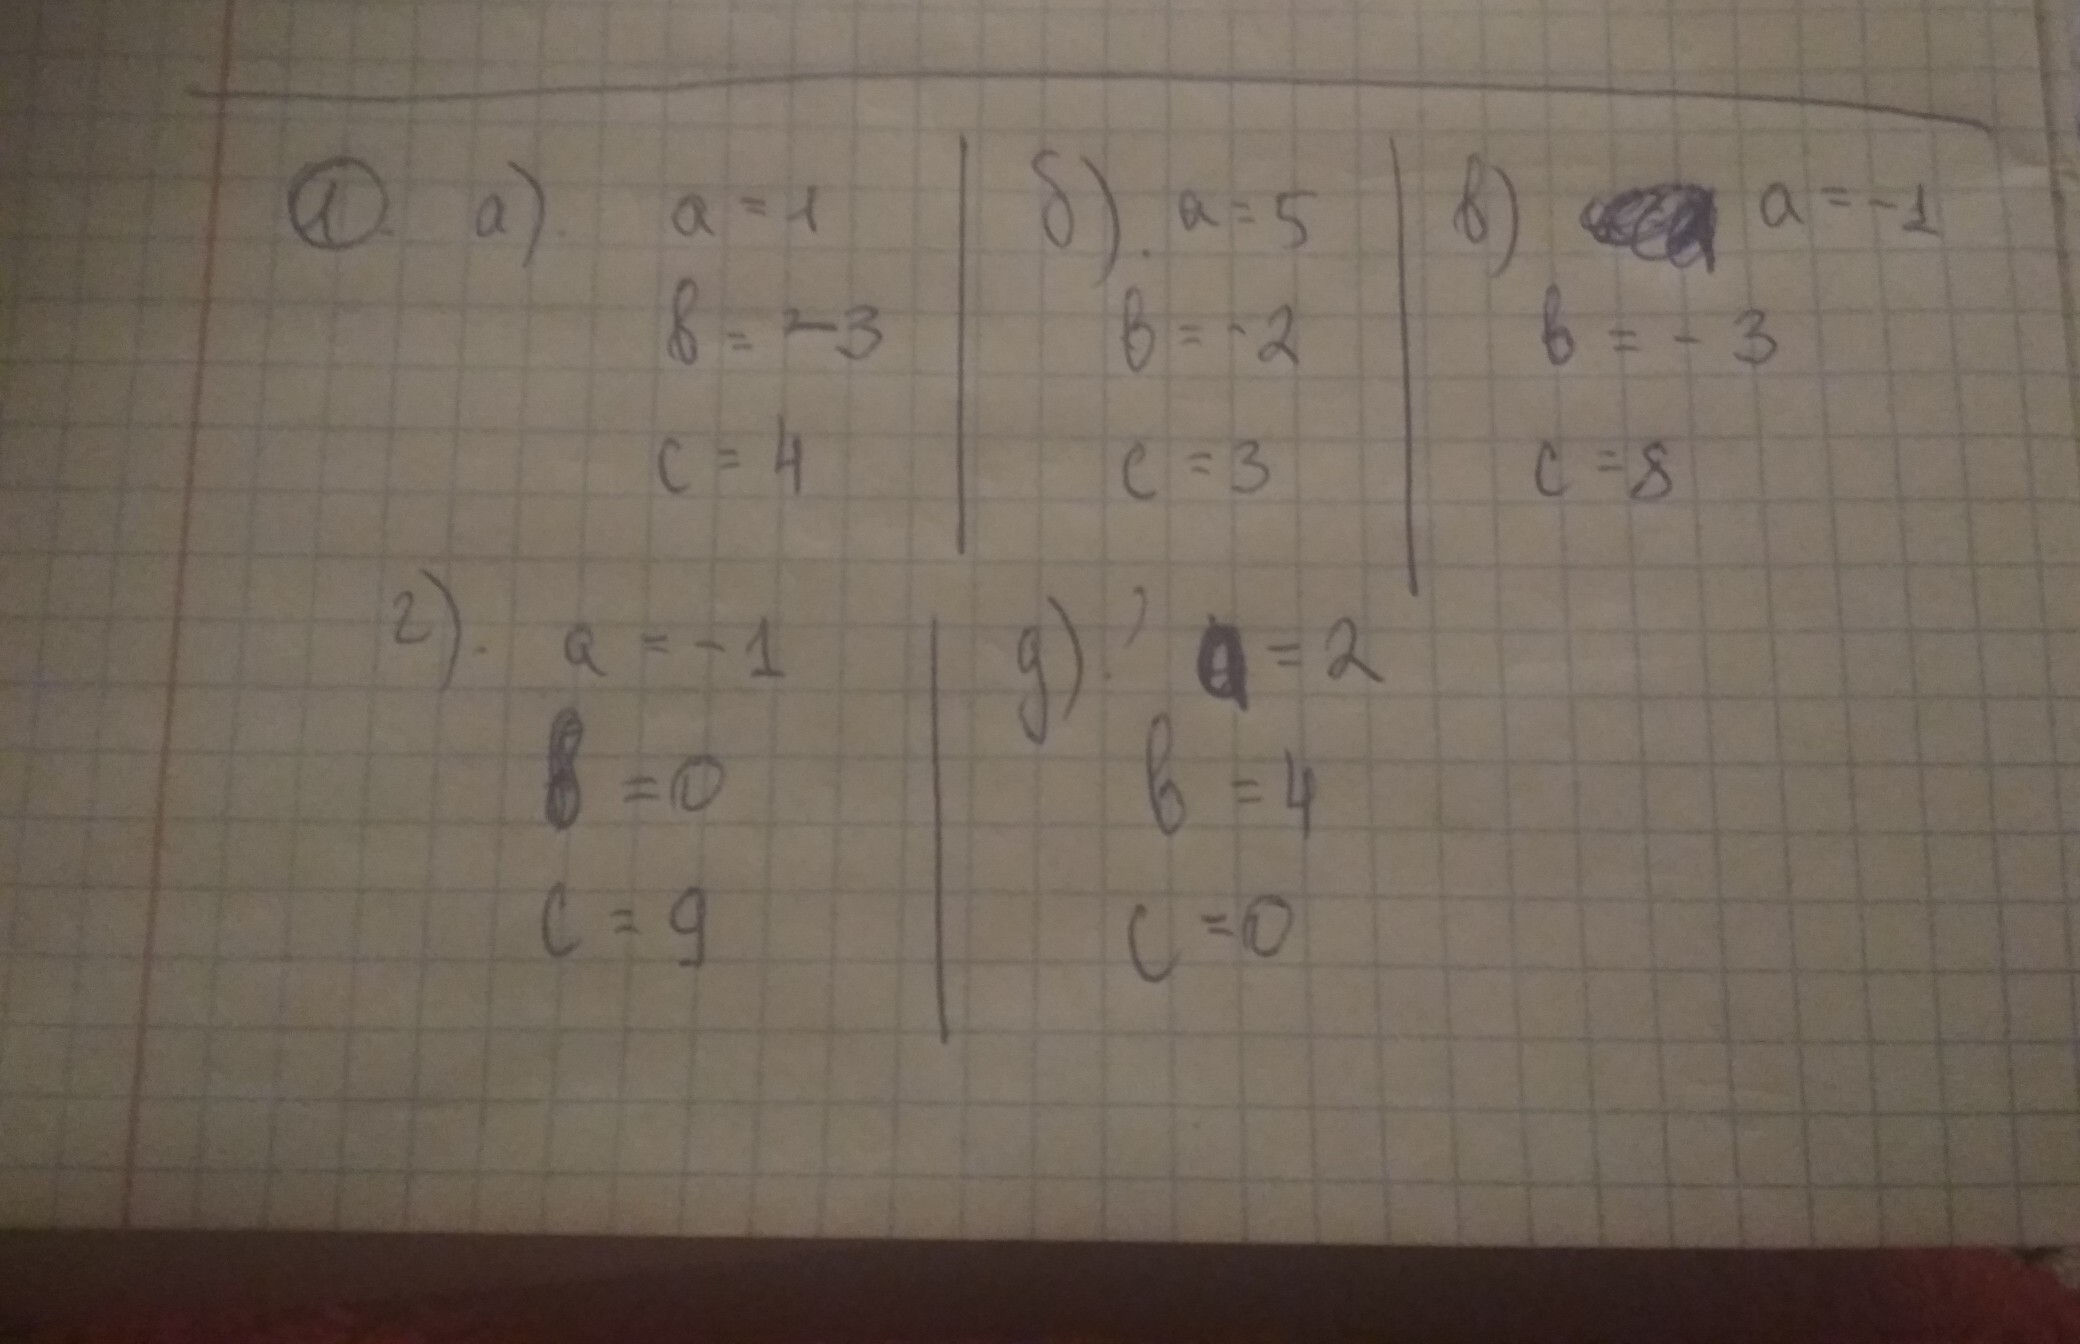 ① а). a = 1
b = -3
c = 4
б). a = 5
b = -2
c = 3
в) a = -1
b = - 3
c = 8
г). a = -1
b = 0
c = 9
д). a = 2
b = 4
c = 0